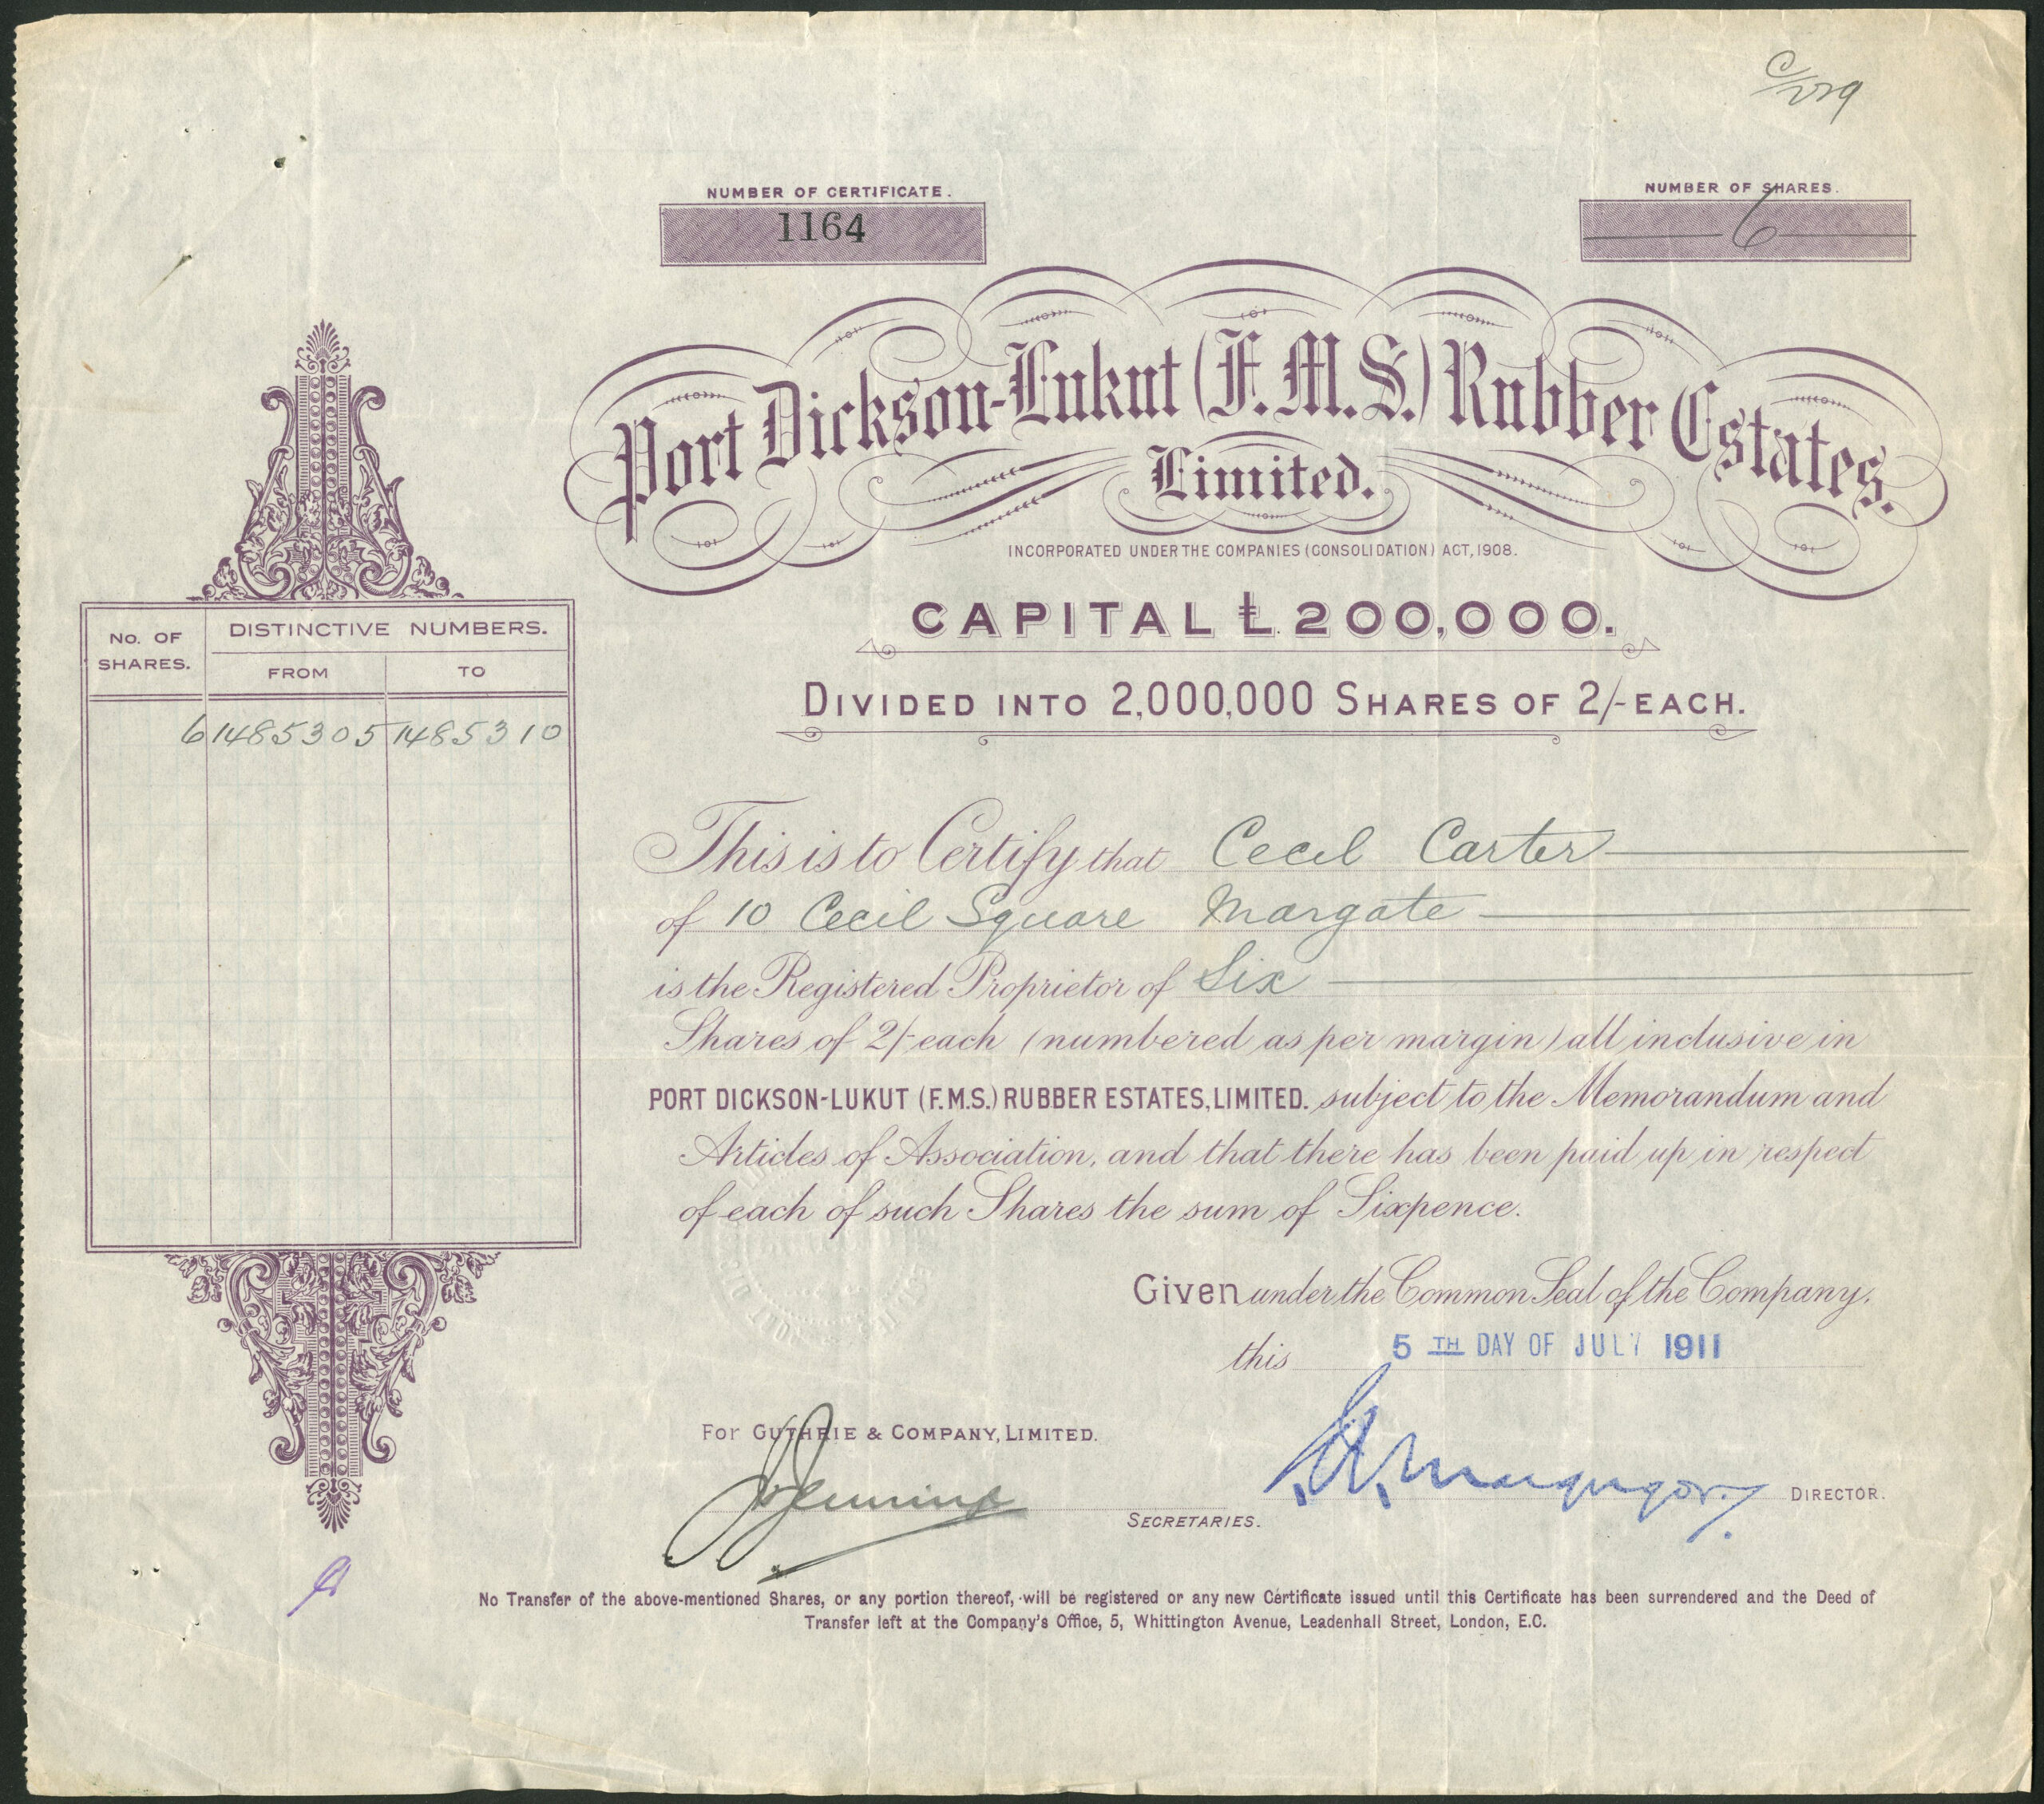 C/229
NUMBER OF CERTIFICATE.
1164
NUMBER OF SHARES.
6
Port Dickson-Lukut (F.M.S.) Rubber Estates.
Limited.
INCORPORATED UNDER THE COMPANIES (CONSOLIDATION) ACT, 1908.
CAPITAL £200,000.
DIVIDED INTO 2,000,000 SHARES OF 2/- EACH.
No. OF SHARES.
DISTINCTIVE NUMBERS.
FROM
TO
6 1485305 1485310
This is to Certify that Cecil Carter
of 10 Cecil Square Margate
is the Registered Proprietor of Six
Shares of 2/- each (numbered as per margin) all inclusive in
PORT DICKSON-LUKUT (F.M.S.) RUBBER ESTATES, LIMITED. subject to the Memorandum and
Articles of Association, and that there has been paid up in respect
of each of such Shares the sum of Sixpence.
Given under the Common Seal of the Company,
this 5 TH DAY OF JULY 1911
For GUTHRIE & COMPANY, LIMITED.
SECRETARIES.
DIRECTOR.
No Transfer of the above-mentioned Shares, or any portion thereof, will be registered or any new Certificate issued until this Certificate has been surrendered and the Deed of
Transfer left at the Company's Office, 5, Whittington Avenue, Leadenhall Street, London, E.C.